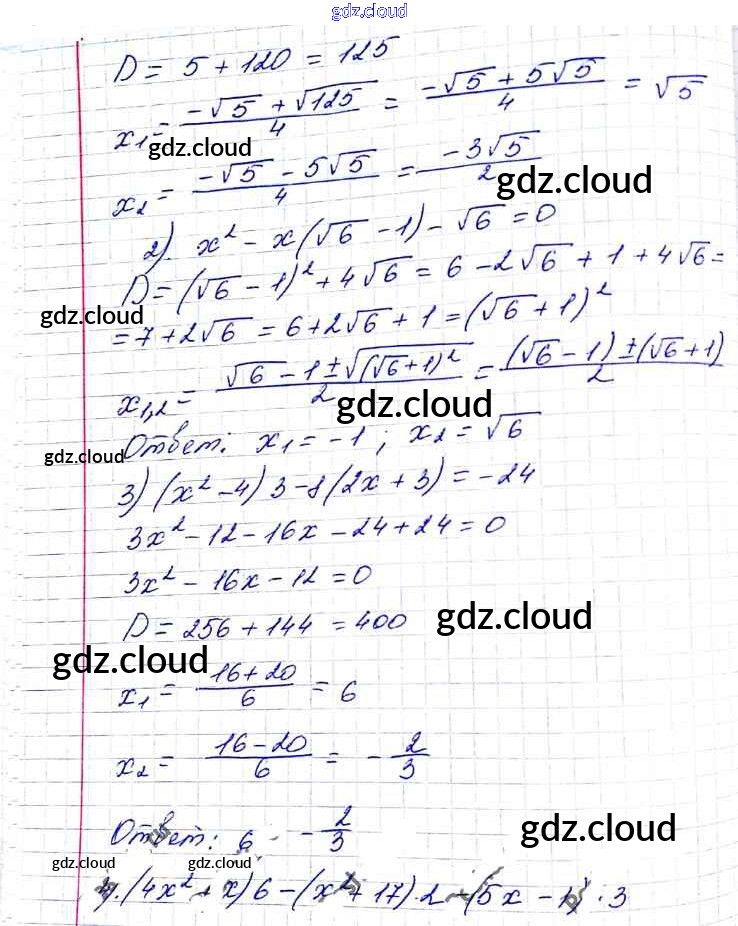 gdz.cloud
D = 5 + 120 = 125
x₁ = (-√5 + √125)/4 = (-√5 + 5√5)/4 = √5
gdz.cloud
x₂ = (-√5 - 5√5)/4 = (-3√5)/2
gdz.cloud
2) x² - x(√6 - 1) - √6 = 0
D = (√6 - 1)² + 4√6 = 6 - 2√6 + 1 + 4√6 =
gdz.cloud
= 7 + 2√6 = 6 + 2√6 + 1 = (√6 + 1)²
x₁,₂ = (√6 - 1 ± √((√6 + 1)²)/2 = ((√6 - 1) ± (√6 + 1))/2
gdz.cloud
Ответ: x₁ = -1; x₂ = √6
gdz.cloud
3) (x² - 4) 3 - 8(2x + 3) = -24
3x² - 12 - 16x - 24 + 24 = 0
3x² - 16x - 12 = 0
D = 256 + 144 = 400
gdz.cloud
gdz.cloud
x₁ = (16 + 20)/6 = 6
x₂ = (16 - 20)/6 = -2/3
Ответ: 6 -2/3
gdz.cloud
gdz.cloud gdz.cloud
4). (4x² + x) 6 - (x² + 17) · 2 = (5x - 1) · 3